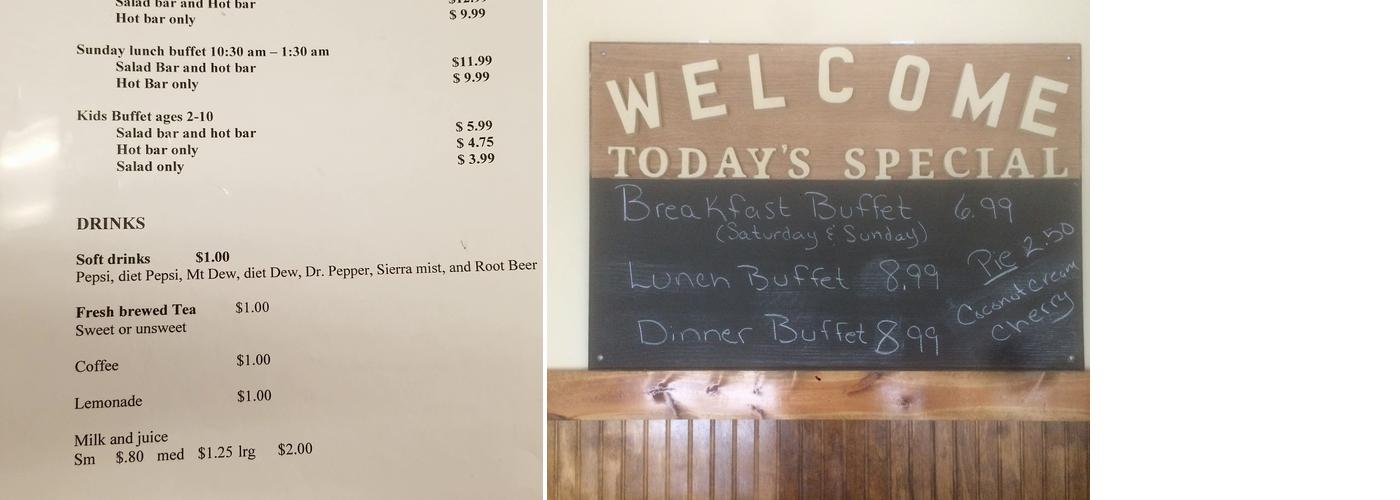 Salad bar and Hot bar $12.99
Hot bar only $ 9.99
Sunday lunch buffet 10:30 am – 1:30 am
Salad Bar and hot bar $11.99
Hot Bar only $ 9.99
Kids Buffet ages 2-10
Salad bar and hot bar $ 5.99
Hot bar only $ 4.75
Salad only $ 3.99
DRINKS
Soft drinks $1.00
Pepsi, diet Pepsi, Mt Dew, diet Dew, Dr. Pepper, Sierra mist, and Root Beer
Fresh brewed Tea $1.00
Sweet or unsweet
Coffee $1.00
Lemonade $1.00
Milk and juice
Sm $.80 med $1.25 lrg $2.00
WELCOME
TODAY'S SPECIAL
Breakfast Buffet 6.99
(Saturday & Sunday)
Lunch Buffet 8.99
Dinner Buffet 8.99
Pie 2.50
Coconut Cream
Cherry